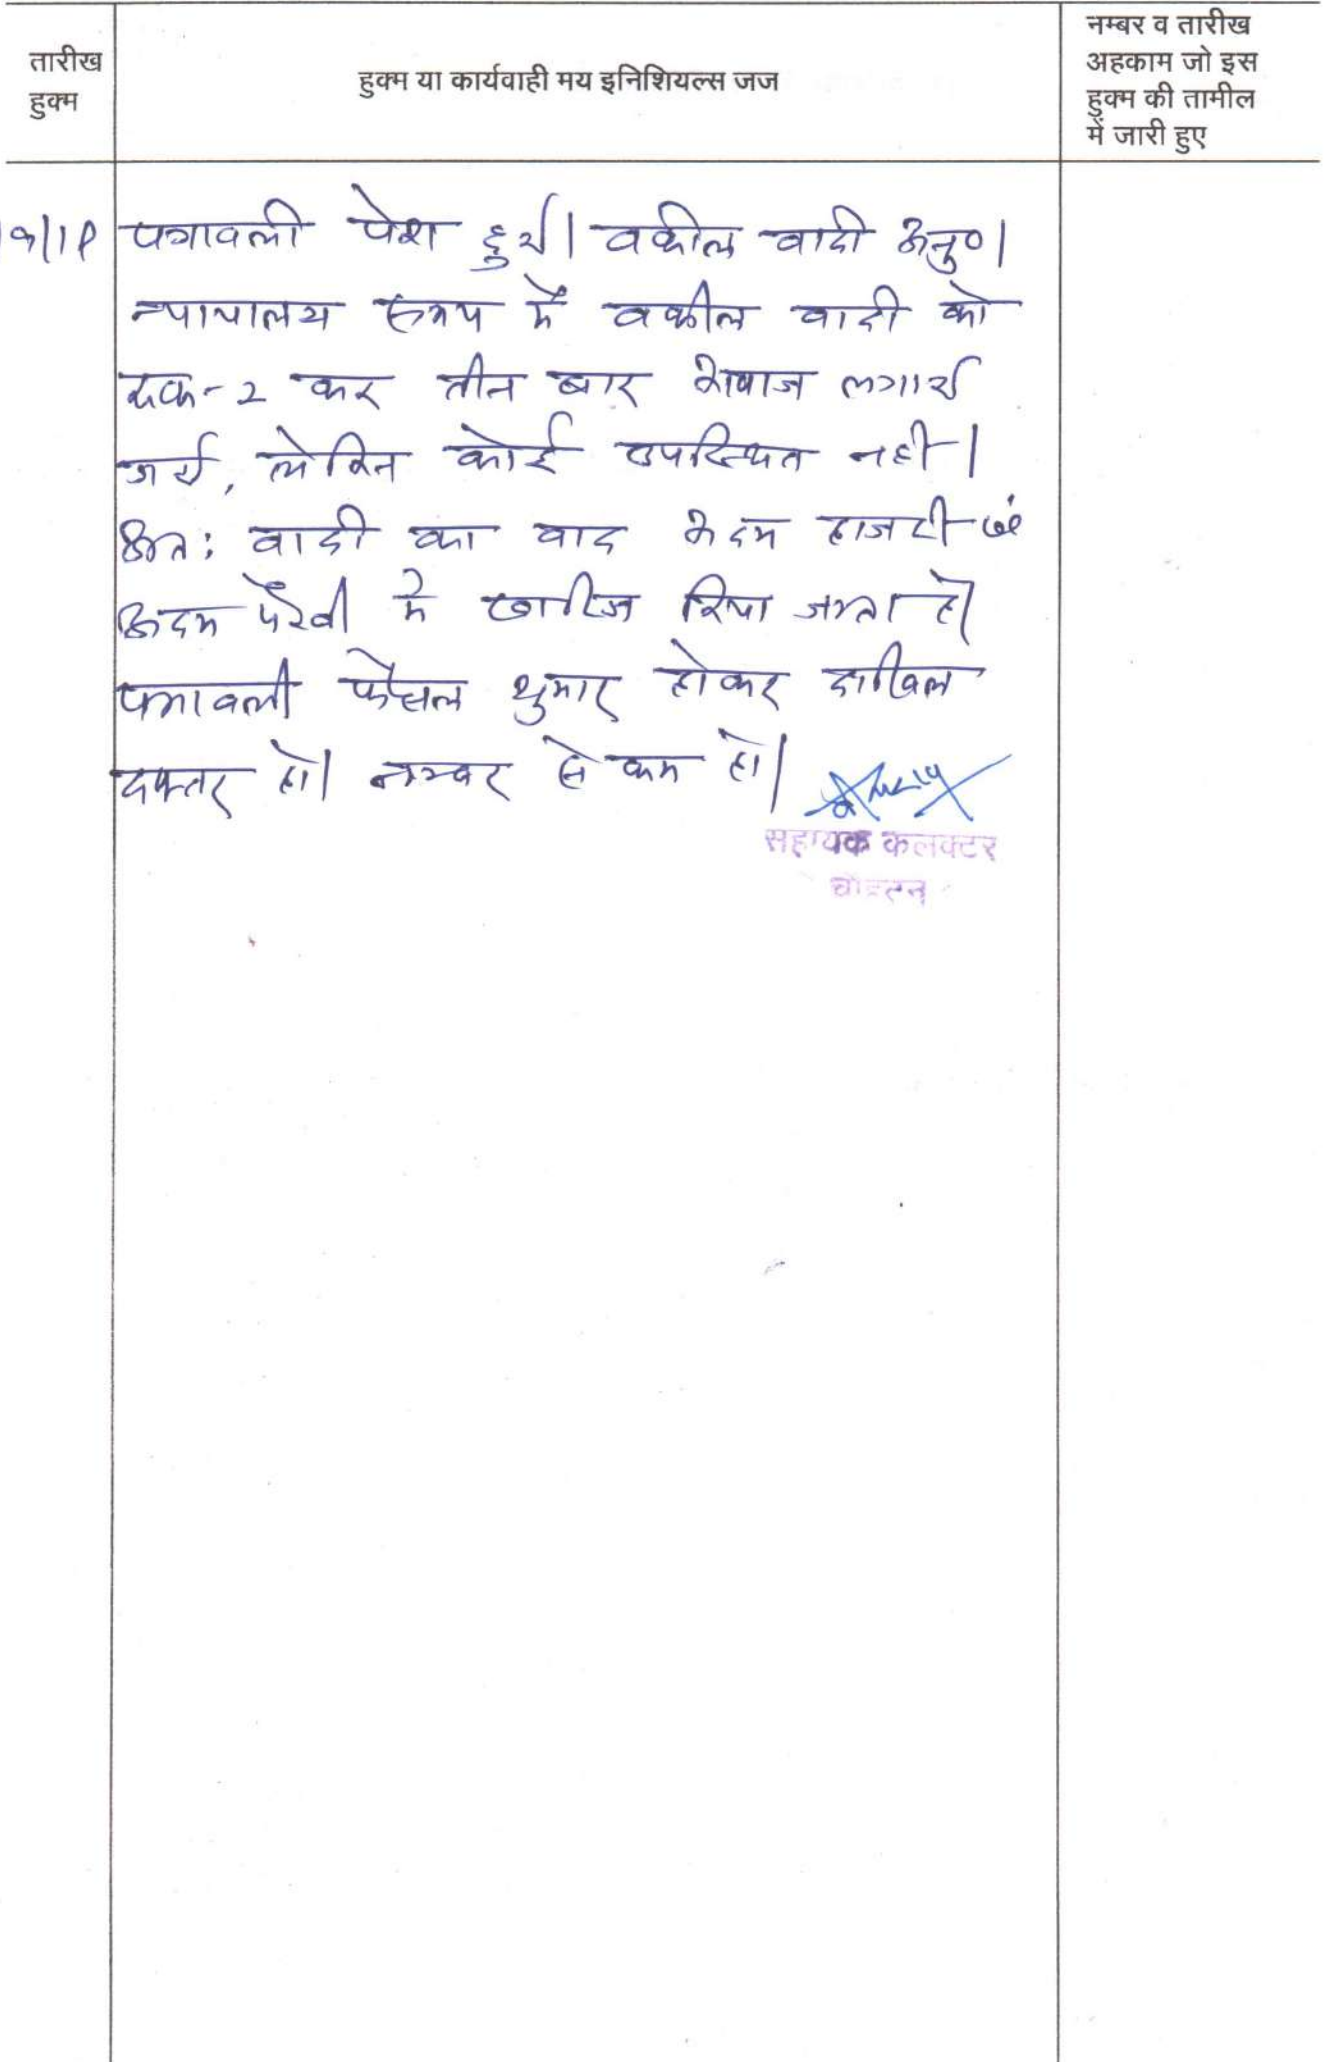 तारीख
हुक्म
हुक्म या कार्यवाही मय इनिशियल्स जज
नम्बर व तारीख
अहकाम जो इस
हुक्म की तामील
में जारी हुए
पत्रावली पेश हुई। वकील वादी अनु०।
न्यायालय समय में वकील वादी को
एक-2 कर तीन बार आवाज लगाई
गई, लेकिन कोई उपस्थित नही।
अत: वादी का वाद अदम हाजरी एवं
अदम पैरवी में खारिज किया जाता है।
पत्रावली फैसल शुमार होकर दाखिल
दफ्तर हो। नम्बर से कम हो।
सहायक कलक्टर
चौहटन